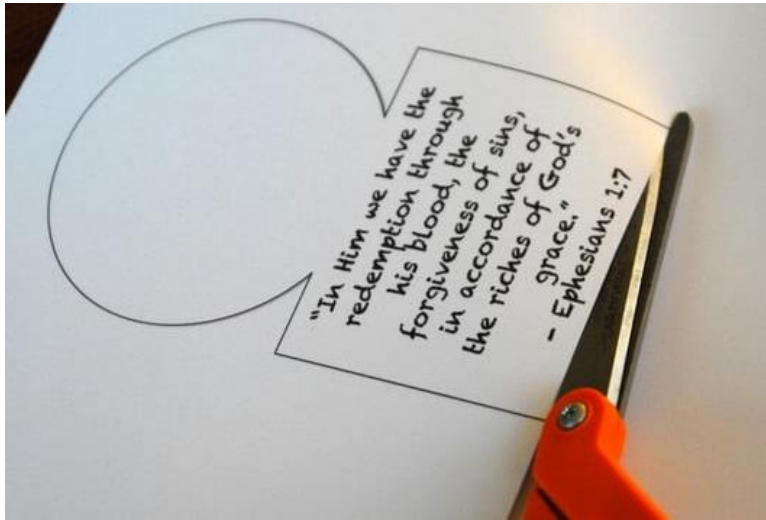 "In Him we have the
redemption through
his blood, the
forgiveness of sins,
in accordance of
the riches of God's
grace."
- Ephesians 1:7